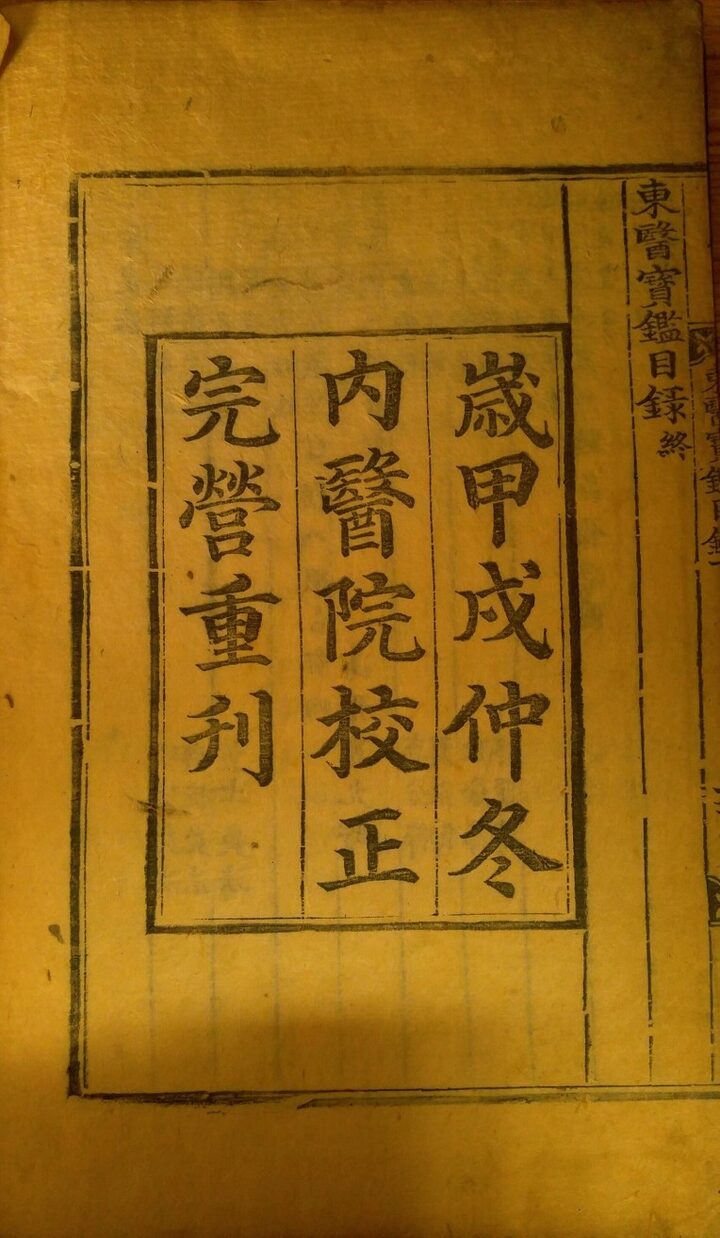 東醫寶鑑目録終
歳甲戌仲冬
内醫院校正
完營重刊